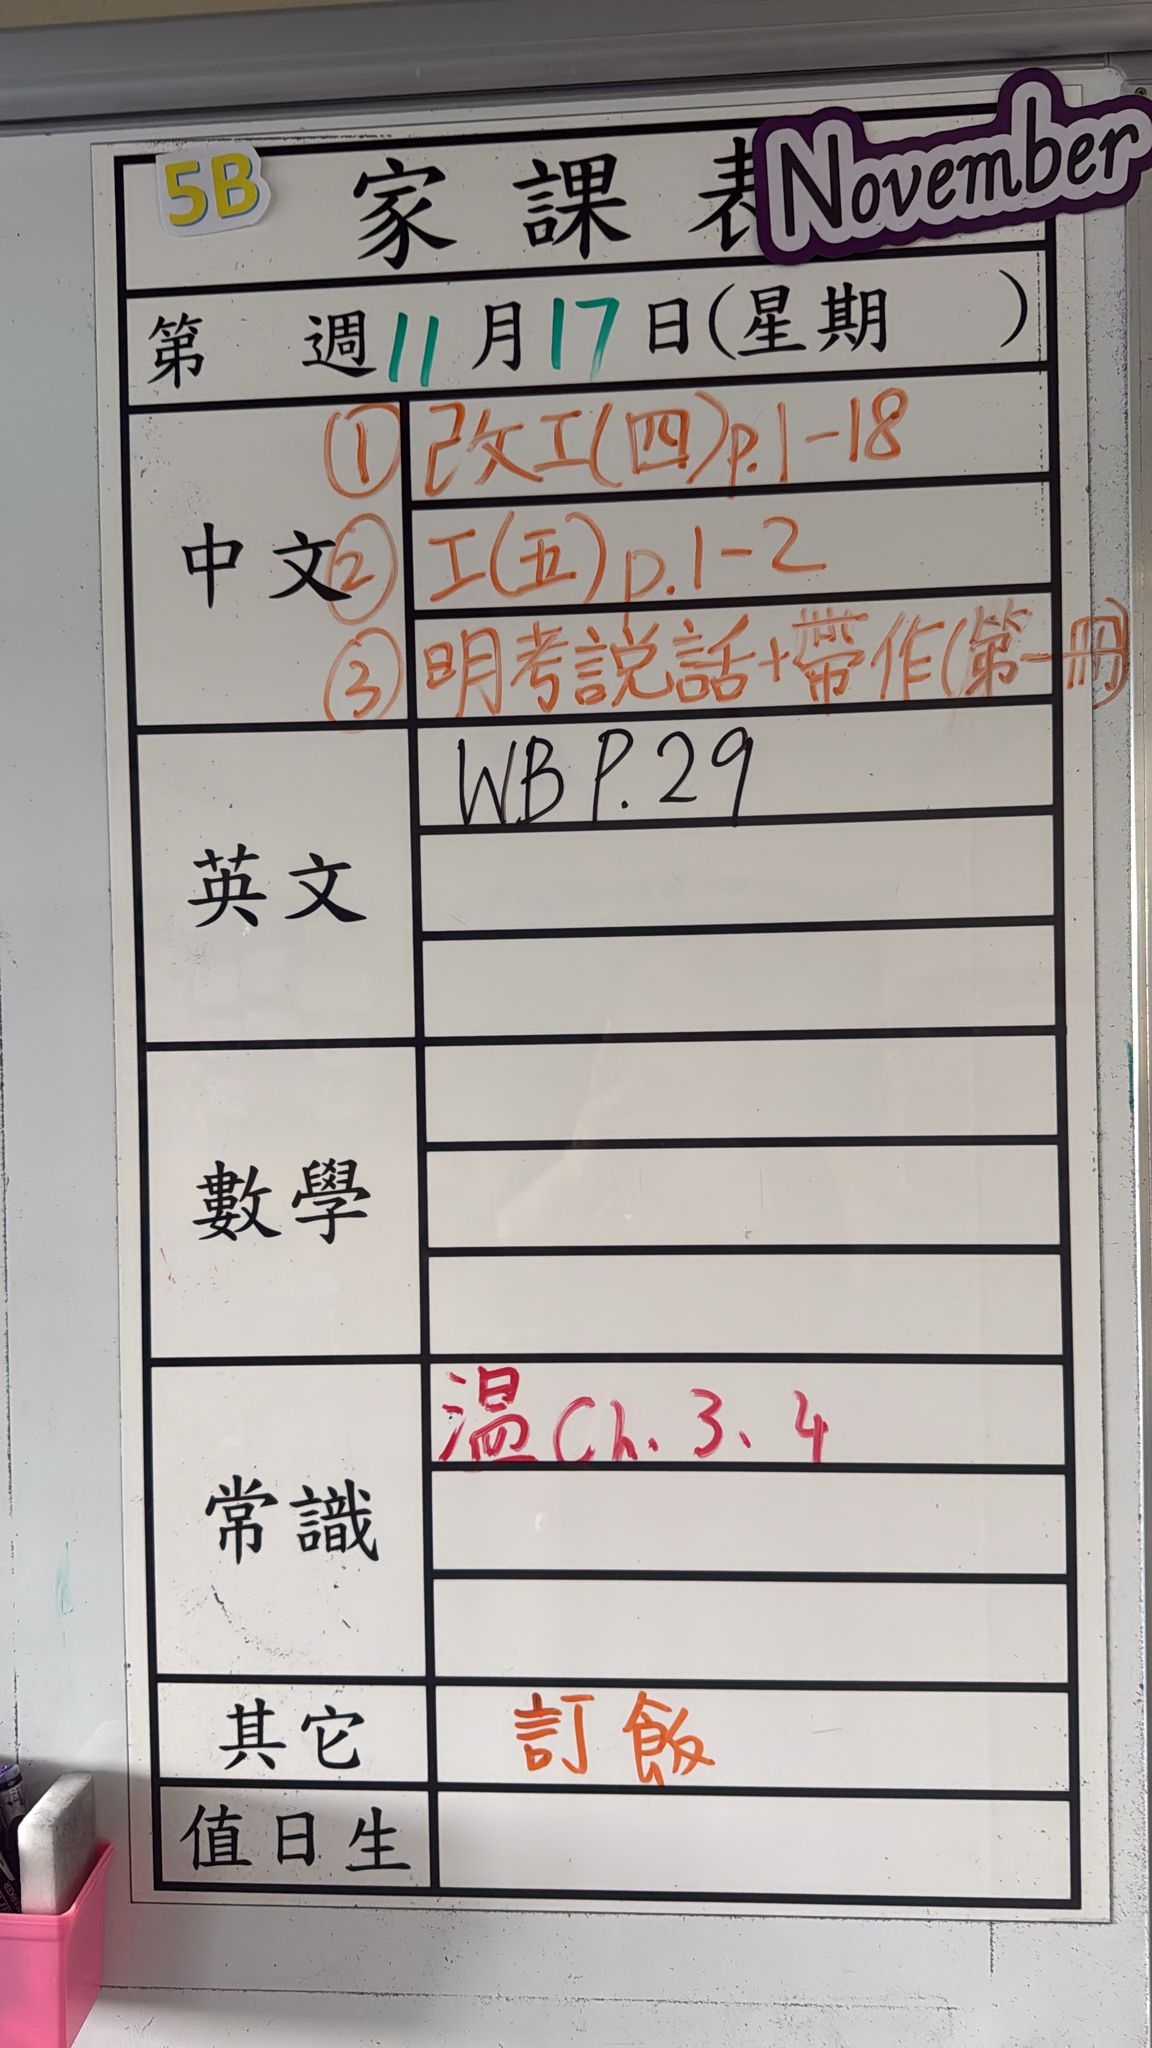 5B 家課表 November
第 週 11 月 17 日(星期 )
中文
① 改工(四)p.1-18
② 工(五)p.1-2
③ 明考說話+帶作(第一冊)
英文
WB P.29
數學
常識
溫 Ch. 3、4
其它
訂飯
值日生